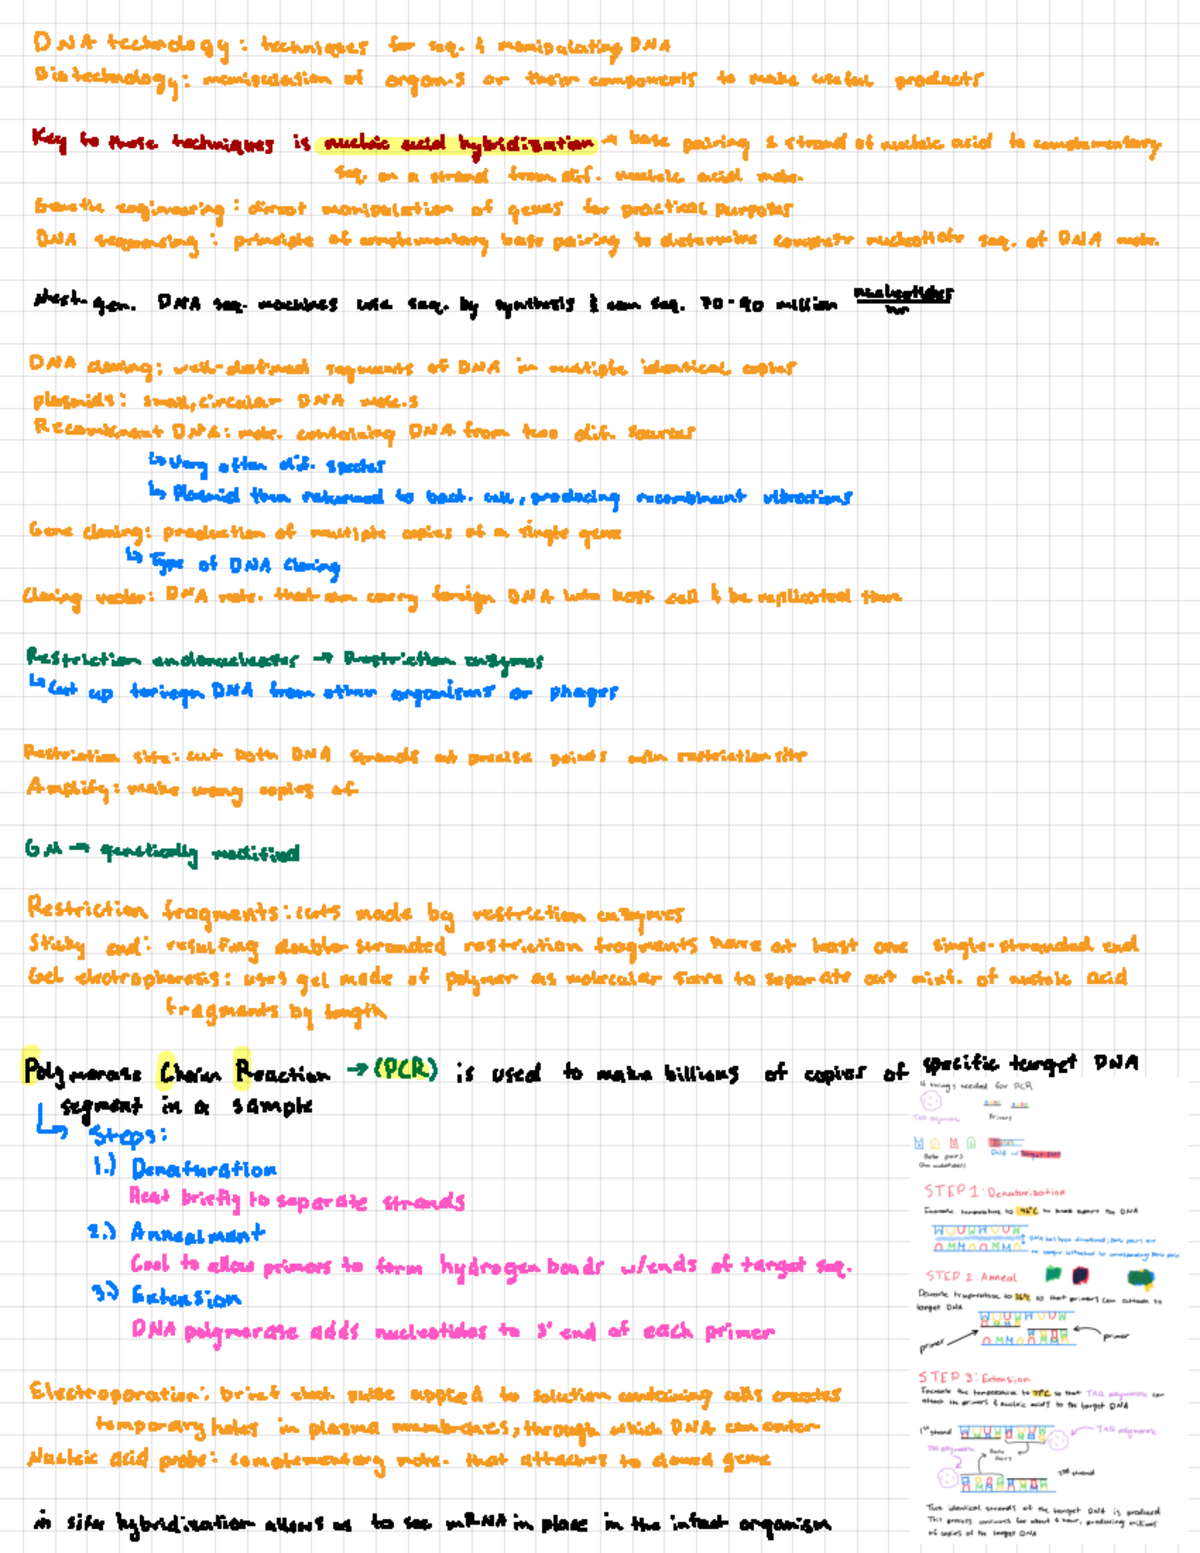 DNA technology: techniques for seq. & manipulating DNA
Biotechnology: manipulation of organ.s or their components to make useful products
Key to these techniques is nucleic acid hybridization → base pairing 1 strand of nucleic acid to complementary
seq. on a strand from dif. nucleic acid molec.
Genetic engineering: direct manipulation of genes for practical purposes
DNA sequencing: principle of complementary base pairing to determine complete nucleotide seq. of DNA molec.
Next-gen. DNA seq. machines use seq. by synthesis & can seq. 70-90 million nucleotides/hr
DNA cloning: well-defined segments of DNA in multiple identical copies
plasmids: small, circular DNA molec.s
Recombinant DNA: molec. containing DNA from two dif. sources
↳ Very often dif. species
↳ Plasmid then returned to bact. cell, producing recombinant vibrations
Gene cloning: production of multiple copies of a single gene
↳ Type of DNA cloning
Cloning vector: DNA molec. that can carry foreign DNA into host cell & be replicated there
Restriction endonucleases → Restriction enzymes
↳ Cut up foriegn DNA from other organisms or phages
Restriction site: cut both DNA strands at precise points w/in restriction site
Amplify: make many copies of
GM → genetically modified
Restriction fragments: cuts made by restriction enzymes
Sticky end: resulting double-stranded restriction fragments have at least one single-stranded end
Gel electrophoresis: uses gel made of polymer as molecular sieve to separate out mixt. of nucleic acid
fragments by length
Polymerase Chain Reaction → (PCR) is used to make billions of copies of specific target DNA
segment in a sample
↳ Steps:
1.) Denaturation
Heat briefly to separate strands
2.) Annealment
Cool to allow primers to form hydrogen bonds w/ends of target seq.
3.) Extension
DNA polymerase adds nucleotides to 3' end of each primer
Electroporation: brief elect. pulse applied to solution containing cells creates
temporary holes in plasma membranes, through which DNA can enter
Nucleic acid probe: complementary molec. that attaches to cloned gene
in situ hybridization allows us to see mRNA in place in the intact organism
4 things needed for PCR
TAQ polymerase
Primers
Base pairs
(nucleotides)
DNA w/ target DNA
STEP 1: Denaturization
Increase temperature to to break apart the DNA
STEP 2: Anneal
Decrease temperature to so that primers can attach to
target DNA
primer
primer
STEP 3: Extension
Increase the temperature to so that TAQ polymerase can
attach the primers & nucleic acids to the target DNA
1st strand
TAQ polymerase
TAQ polymerase
Base
Pairs
2nd strand
Two identical strands of the target DNA is produced
This process continues for about hour, producing millions
of copies of the target DNA